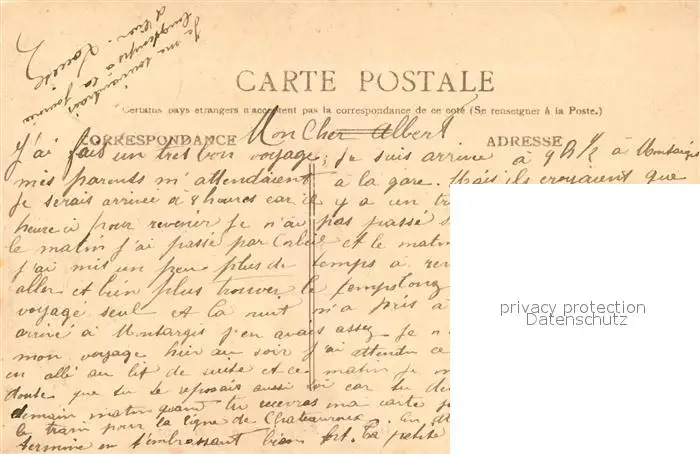 Je me souviendrai
longtemps de la journée
d'hier. Louise
CARTE POSTALE
Certains pays étrangers n'acceptent pas la correspondance de ce côté (Se renseigner à la Poste.)
CORRESPONDANCE Mon Cher Albert ADRESSE
J'ai fait un tres bon voyage, Je suis arrivée à 9 H ½ à Montargis
mes parents m'attendaient à la gare. Mais ils croyaient que
Je serais arrivée à 8 heures car il y a un
heure à pour revenir Je n'ai pas passé
le matin j'ai passé par Corbeil et le matin
j'ai mis un peu plus de temps à
aller et bien plus trouver le temps long
voyagé seul et la nuit m'a pris à
arrivé à Montargis j'en avais assez Je
mon voyage hier au soir j'ai attendu
en allé au lit de suite et ce matin Je
doute que tu te reposais aussi toi car tu
demain matin quand tu recevras ma carte
le train pour la ligne de Chateauroux. En
termine en t'embrassant bien fort. Ta petite
privacy protection
Datenschutz